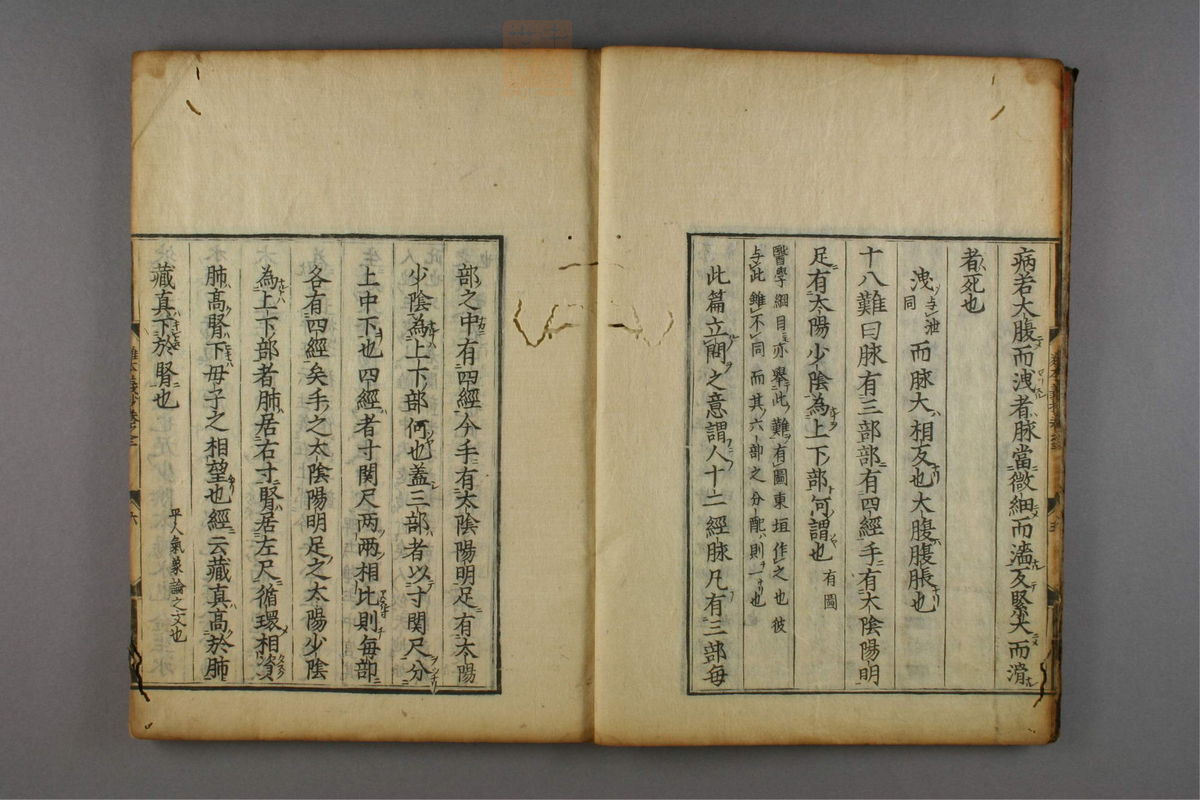 病若大腹而洩者脉當微細而濇反緊大而滑
者死也
洩与泄同而脉大相反也大腹腹脹也
十八難曰脉有三部部有四經手有太陰陽明
足有太陽少陰為上下部何謂也有圖
醫學綱目亦舉此難有圖東垣作之也彼
与此雖不同而其六部之分配則一也
此篇立問之意謂人十二經脉凡有三部每
部之中有四經今手有太陰陽明足有太陽
少陰為上下部何也蓋三部者以寸関尺分
上中下也四經者寸関尺两两相比則每部
各有四經矣手之太陰陽明足之太陽少陰
為上下部者肺居右寸腎居左尺循環相資
肺髙腎下母子之相望也經云藏真髙於肺
藏真下於腎也平人氣象論之文也
六